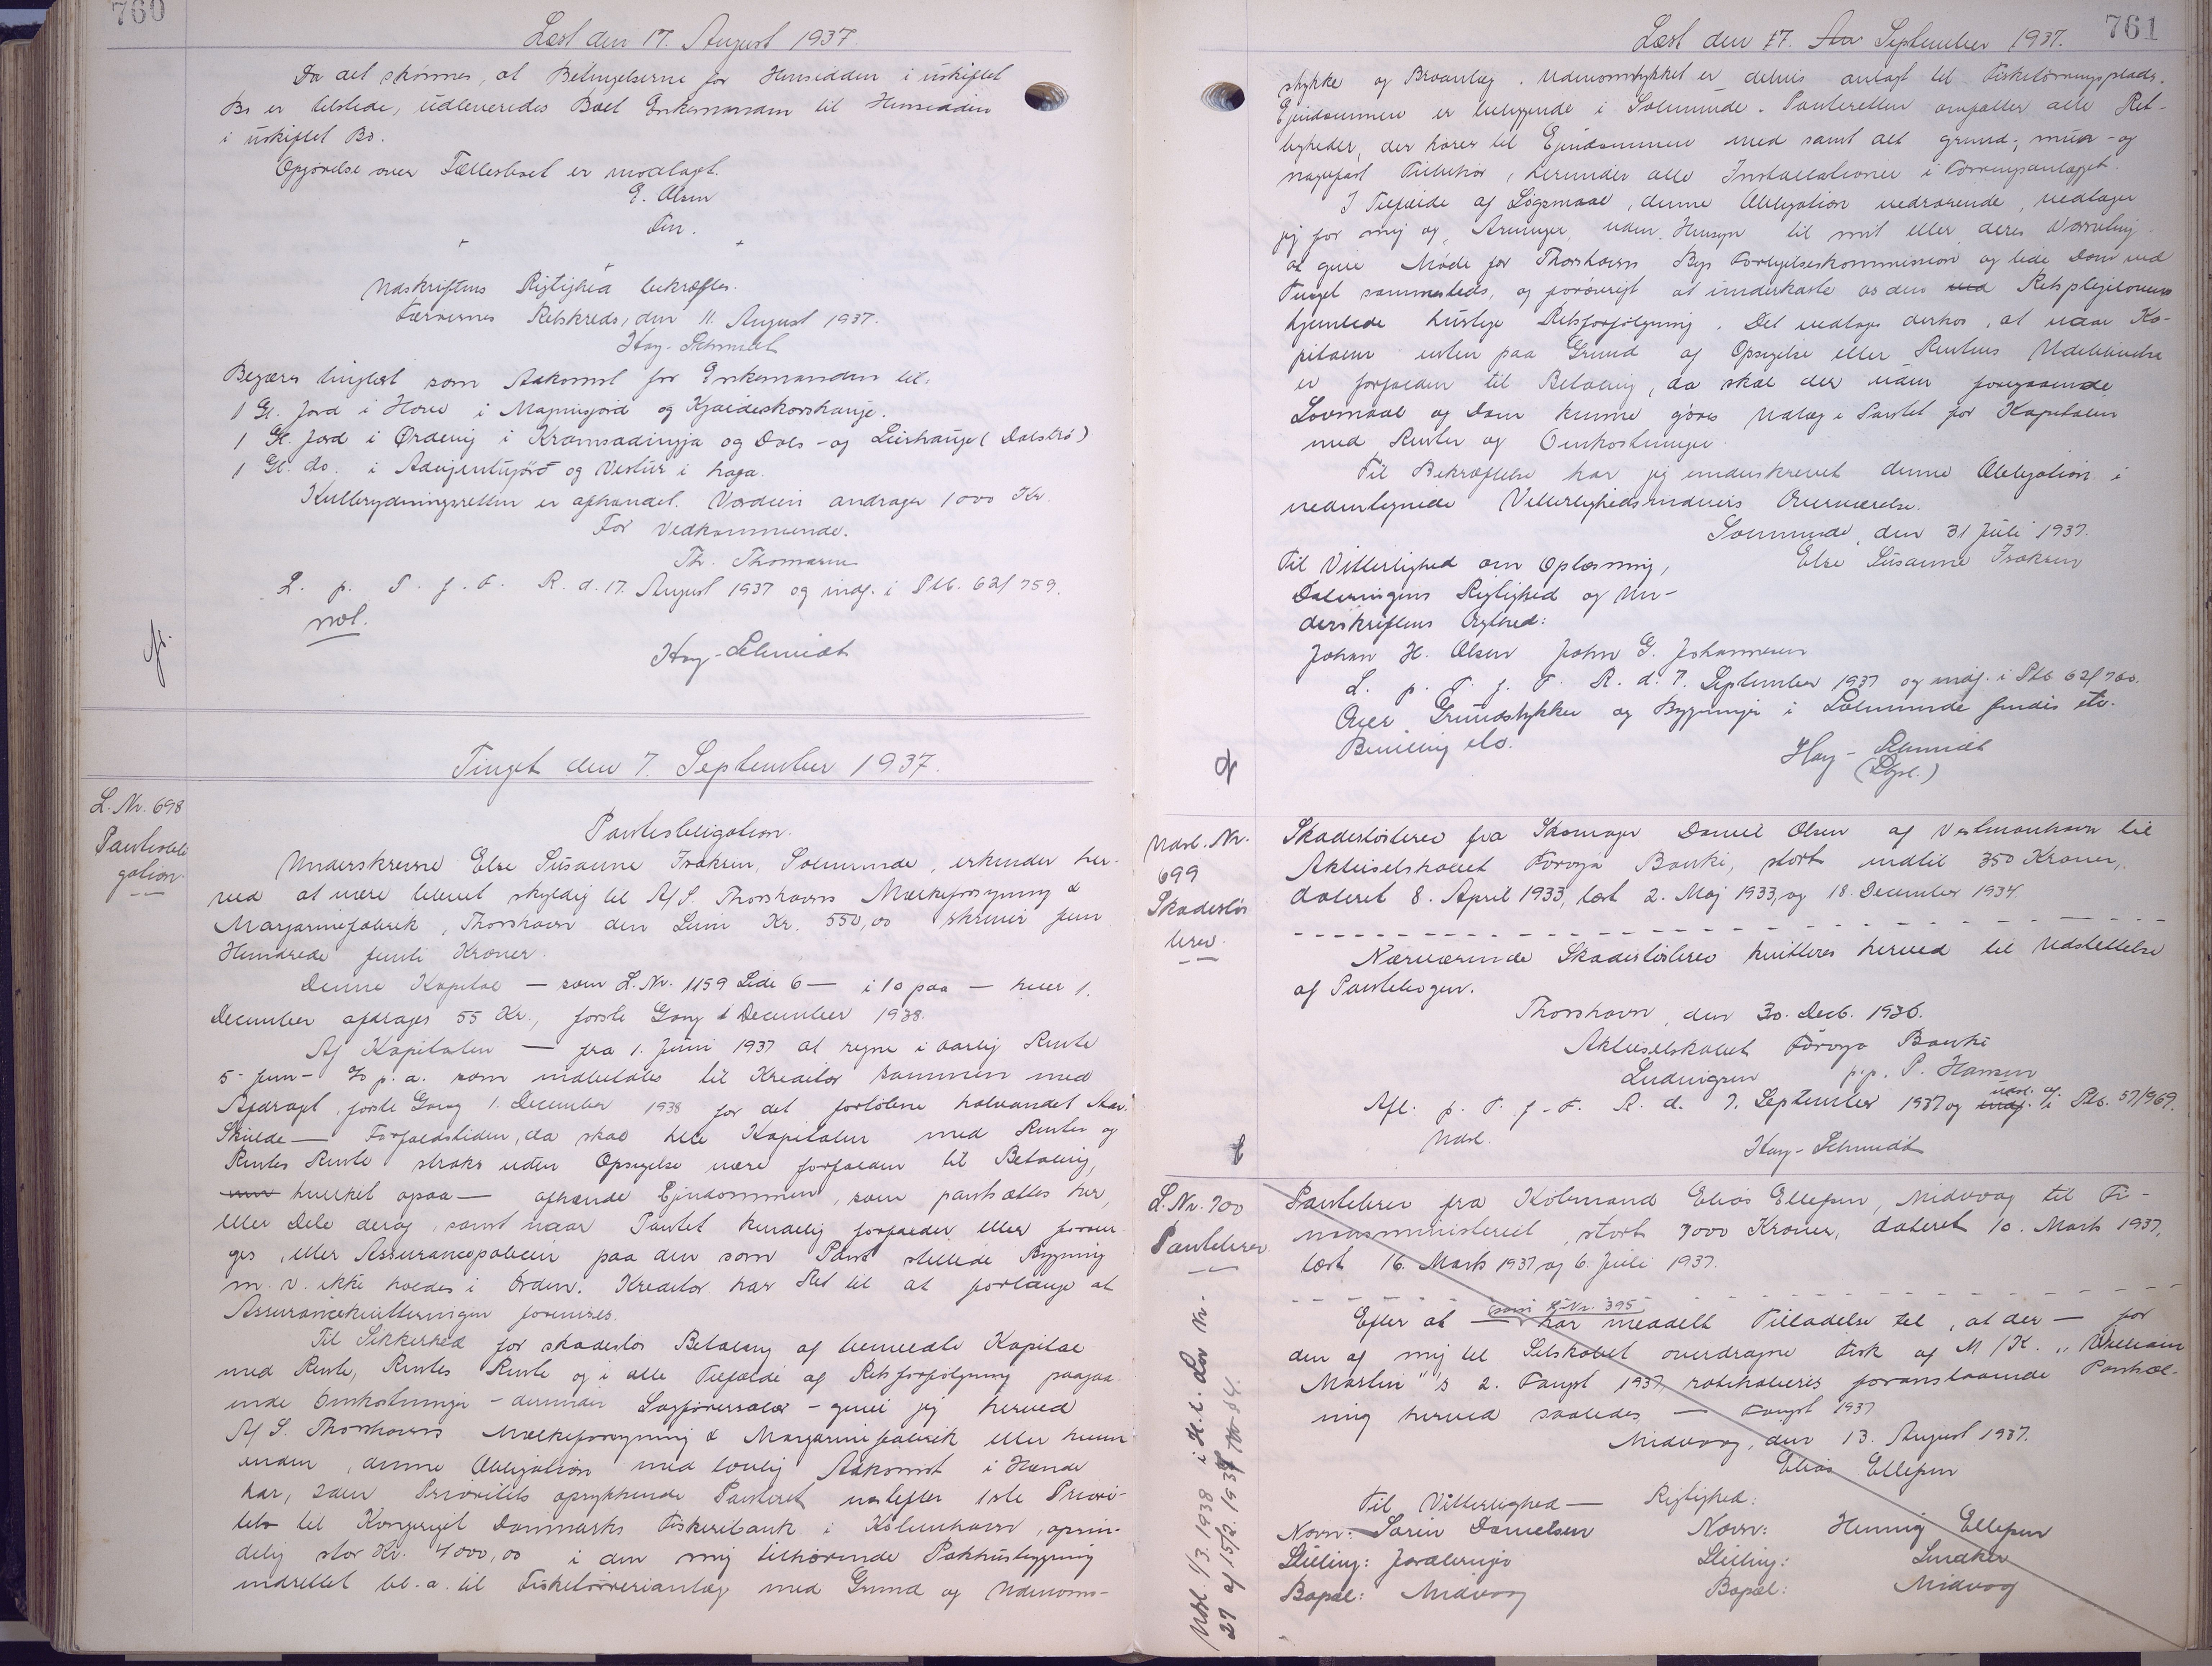 760
Læst den 17. August 1937.
Da det skønnes, at Betingelserne for Hensidden i uskiftet
Bo er tilstede, udleveredes Boet Enkemanden til Hensidden
i uskiftet Bo.
Opgørelse over Fællesboet er modtaget.
E. Olsen
Fm.
Udskriftens Rigtighed bekræftes.
Færøernes Retskreds, den 11. August 1937.
Hay-Schmidt
Begæres tinglæst som Adkomst for Enkemanden til:
1 Gl. Jord i Hove i Magnusjord og Kjaldeskorshauje.
1 Gl. Jord i Ørdevig i Kromsadingja og Dals- og Lidhauje (Dalstrø)
1 Gl. do. i Adujentujørd og Vestur i haga.
Kulbrydningsretten er afhændet. Værdien andrager 1000 Kr.
For Vedkommende.
Th. Thomsen
L. p. T. f. F. R. d. 17. August 1937 og indf. i Ptb. 62/759.
not.
Hay-Schmidt
Tinget den 7. September 1937.
L. Nr. 698
Pantobli
gation
Pantobligation.
Underskrevne Else Susanne Joensen, Solmunde, erkender her-
ved at være bleven skyldig til A/S. Thorshavns Mælkeforsyning &
Margarinefabrik, Thorshavn den Sum Kr. 550,00 skriver fem
Hundrede femti Kroner.
Denne Kapital — som L. Nr. 1159 Side 6 — i 10 paa — hver 1.
December afdrages 55 Kr., første Gang 1 December 1938.
Af Kapitalen — fra 1. Juni 1937 at regne i aarlig Rente
5 - fem - % p. a. som indbetales til Kreditor sammen med
Afdraget, første Gang 1. December 1938 for det forløbne halvandet Aar.
Skulde — Forfaldstiden, da skal hele Kapitalen med Renter og
Rentes Rente straks uden Opsigelse være forfalden til Betaling,
hvilket ogsaa — afhænde Ejendommen, som pantsættes her,
eller Dele deraf, samt naar Pantet kendelig forfalder eller forrin-
ges, eller Assurancepolicen paa den som Pant stillede Bygning
m. v. ikke holdes i Orden. Kreditor har Ret til at forlange at
Assurancekvitteringen forevises.
Til Sikkerhed for skadesløs Betaling af bemeldte Kapital
med Rente, Rentes Rente og i alle Tilfælde af Retsforfølgning paagaa-
ende Omkostninger - derunder Sagførersalær - giver jeg herved
A/S. Thorshavns Mælkeforsyning & Margarinefabrik eller hvem
enden, denne Obligation med lovlig Adkomst i Hænde
har, 2den Prioritets oprykkende Panteret næstefter 1ste Priori-
tet til Kongeriget Danmarks Fiskeribank i København, oprin-
delig stor Kr. 4000,00 i den mig tilhørende Pakhusbygning
indrettet bl. a. til Fisketørrerianlæg med Grund og Udenoms-
761
Læst den 7. September 1937.
stykke og Broanlæg. Udenomstykket er delvis anlagt til Fisketørringsplads.
Ejendommen er beliggende i Solmunde. Panteretten omfatter alle Ret-
tigheder, der hører til Ejendommen med samt alt grund-, mur- og
nagelfast Tilbehør, herunder alle Installationer i Tørringsanlægget.
I Tilfælde af Søgsmaal, denne Obligation vedrørende, vedtager
jeg for mig og Arvinger, uden Hensyn til mit eller deres Værneting
at give Møde for Thorshavns Bys Forligelseskommission og lide Dom ved
Tinget sammesteds, og forøvrigt at underkaste os den ved Retsplejelovens
hjemlede hurtige Retsforfølgning. Det vedtages derhos, at naar Ka-
pitalen enten paa Grund af Opsigelse eller Rentens Udeblivelse
er forfalden til Betaling, da skal der uden foregaaende
Lovmaal og Dom kunne gøres Udlæg i Pantet for Kapitalen
med Renter og Omkostninger.
Til Bekræftelse har jeg underskrevet denne Obligation i
nedentegnede Vitterlighedsvidners Overværelse.
Solmunde, den 31 Juli 1937.
Til Vitterlighed om Oplæsning,
Else Susanne Joensen
Dateringens Rigtighed og Un-
derskriftens Ægthed:
Johan H. Olsen John G. Johannesen
L. p. T. f. F. R. d. 7. September 1937 og indf. i Ptb 62/760.
Over Grundstykker og Bygninger i Solmunde findes etc.
Bevilling etc.
Hay-Schmidt
(Bgst.)
Udsl. Nr.
699
Skadesløs
brev.
Skadesløsbrev fra Skomager Daniel Olsen af Vestmanhavn til
Aktieselskabet Føroya Banki, stort indtil 350 Kroner,
dateret 8. April 1933, læst 2. Maj 1933, og 18. December 1934.
Nærværende Skadesløsbrev kvitteres herved til Udslettelse
af Pantebogen.
Thorshavn, den 30. Decb. 1936.
Aktieselskabet Føroya Banki
Ludvigsen p.p. P. Hansen
Afl. p. T. f. F. R. d. 7. September 1937 og udsl. af Ptb. 57/969.
Udsl.
Hay-Schmidt
L. Nr. 700
Pantebrev
Pantebrev fra Købmand Elias Ellefsen, Midvaag til Fi-
nansministeriet, stort 7000 Kroner, dateret 10. Marts 1937,
læst 16. Marts 1937 og 6. Juli 1937.
Efter at — (som L. Nr. 395) har meddelt Tilladelse til, at der — for
den af mig til Selskabet overdragne Fisk af M/K. "William
Martin"'s 2. Fangst 1937, ratihaberes foranstaaende Pantsæt-
ning herved saaledes — Fangst 1937
Midvaag, den 13. August 1937.
Elias Ellefsen
Til Vitterlighed — Rigtighed:
Navn: Sørin Danielsen Navn: Hennig Ellefsen
Stilling: Jordbruger Stilling: Snedker
Bopæl: Midvaag Bopæl: Midvaag
Udsl. 1/3. 1938 i H. t. Lov Nr.
27 af 15/2. 1938